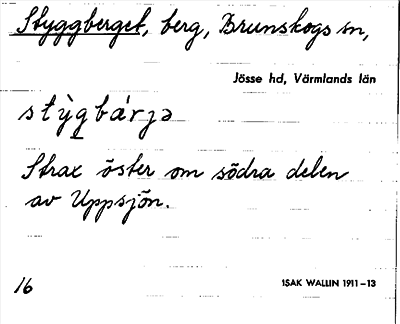 Styggberget, berg, Brunskogs sn,
Jösse hd, Värmlands län
stỳg bárjə
Strax öster om södra delen
av Uppsjön.
16
ISAK WALLIN 1911–13